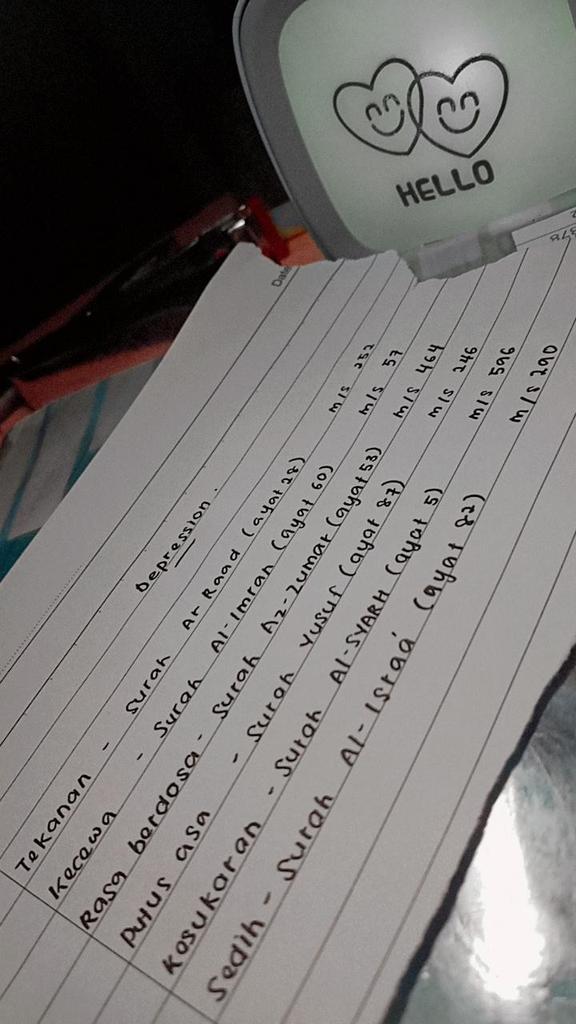 HELLO
Date
378
Depression.
Tekanan - Surah Ar Raad (ayat 28) m/s 252
Kecewa - Surah Al-Imran (ayat 60) m/s 57
Rasa berdosa - Surah Az-Zumar (ayat 53) m/s 464
Putus asa - Surah Yusuf (ayat 87) m/s 246
Kesukaran - Surah Al-SYARH (ayat 5) m/s 596
Sedih - Surah Al-Israa' (ayat 82) m/s 290